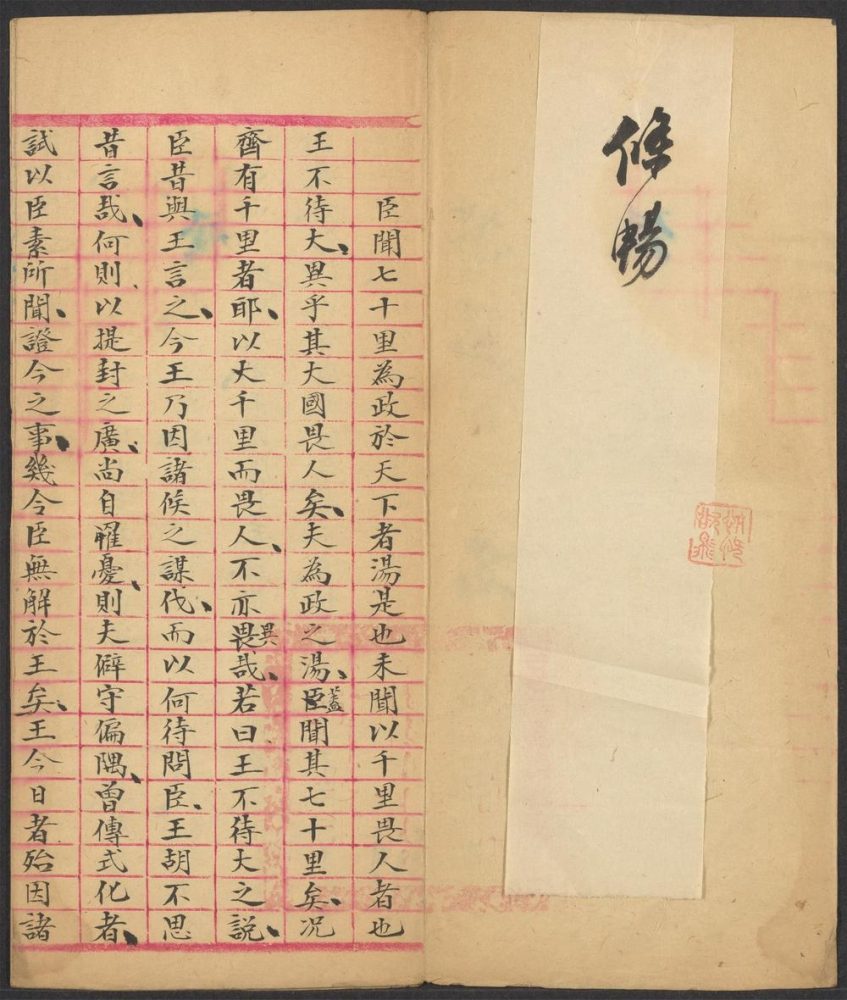 條暢
臣聞七十里為政於天下者湯是也未聞以千里畏人者也
王不待大、異乎其大國畏人矣、夫為政之湯、臣蓋聞其七十里矣、况
齊有千里者耶、以大千里而畏人、不亦畏異哉、若曰王不待大之說、
臣昔與王言之、今王乃因諸侯之謀伐、而以何待問臣、王胡不思
昔言哉、何則、以提封之廣、尚自罹憂、則夫僻守偏隅、曾傳式化者、
試以臣素所聞、證今之事、幾令臣無解於王矣、王今日者殆因諸